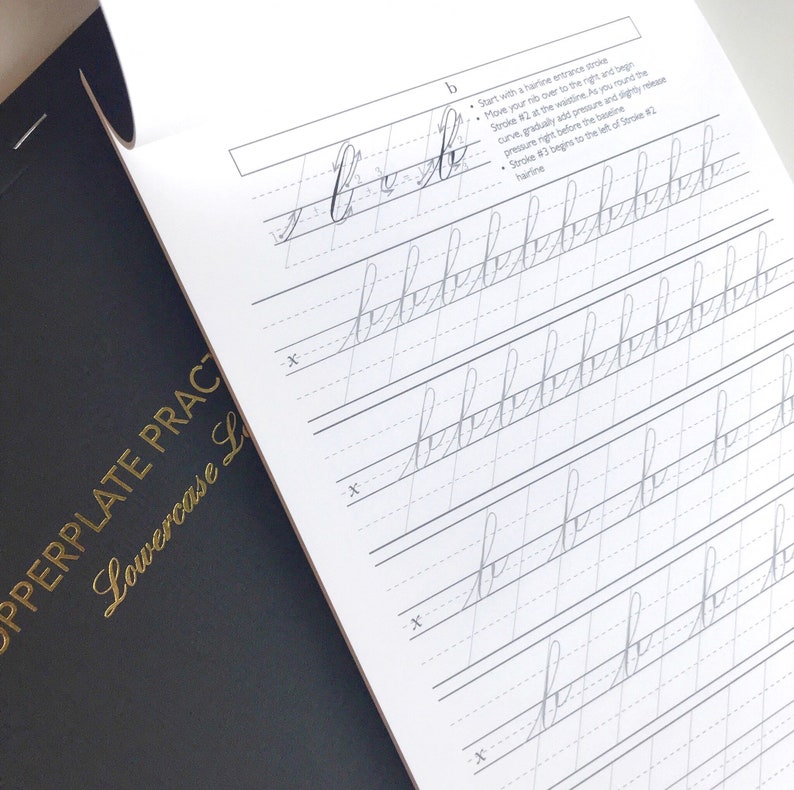 b
• Start with a hairline entrance stroke
• Move your nib over to the right and begin
Stroke #2 at the waistline. As you round the
curve, gradually add pressure and slightly release
pressure right before the baseline
• Stroke #3 begins to the left of Stroke #2
hairline
b
b b b b b b b b b
x
b b b b b b b b b
x
b b b b b
x
b b b b
x
OPPERPLATE PRACT
Lowercase L